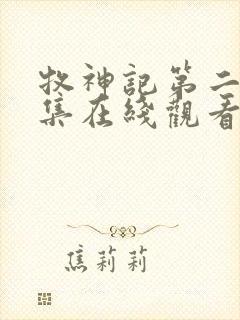 牧神記第二
集在綫觀看
焦莉莉